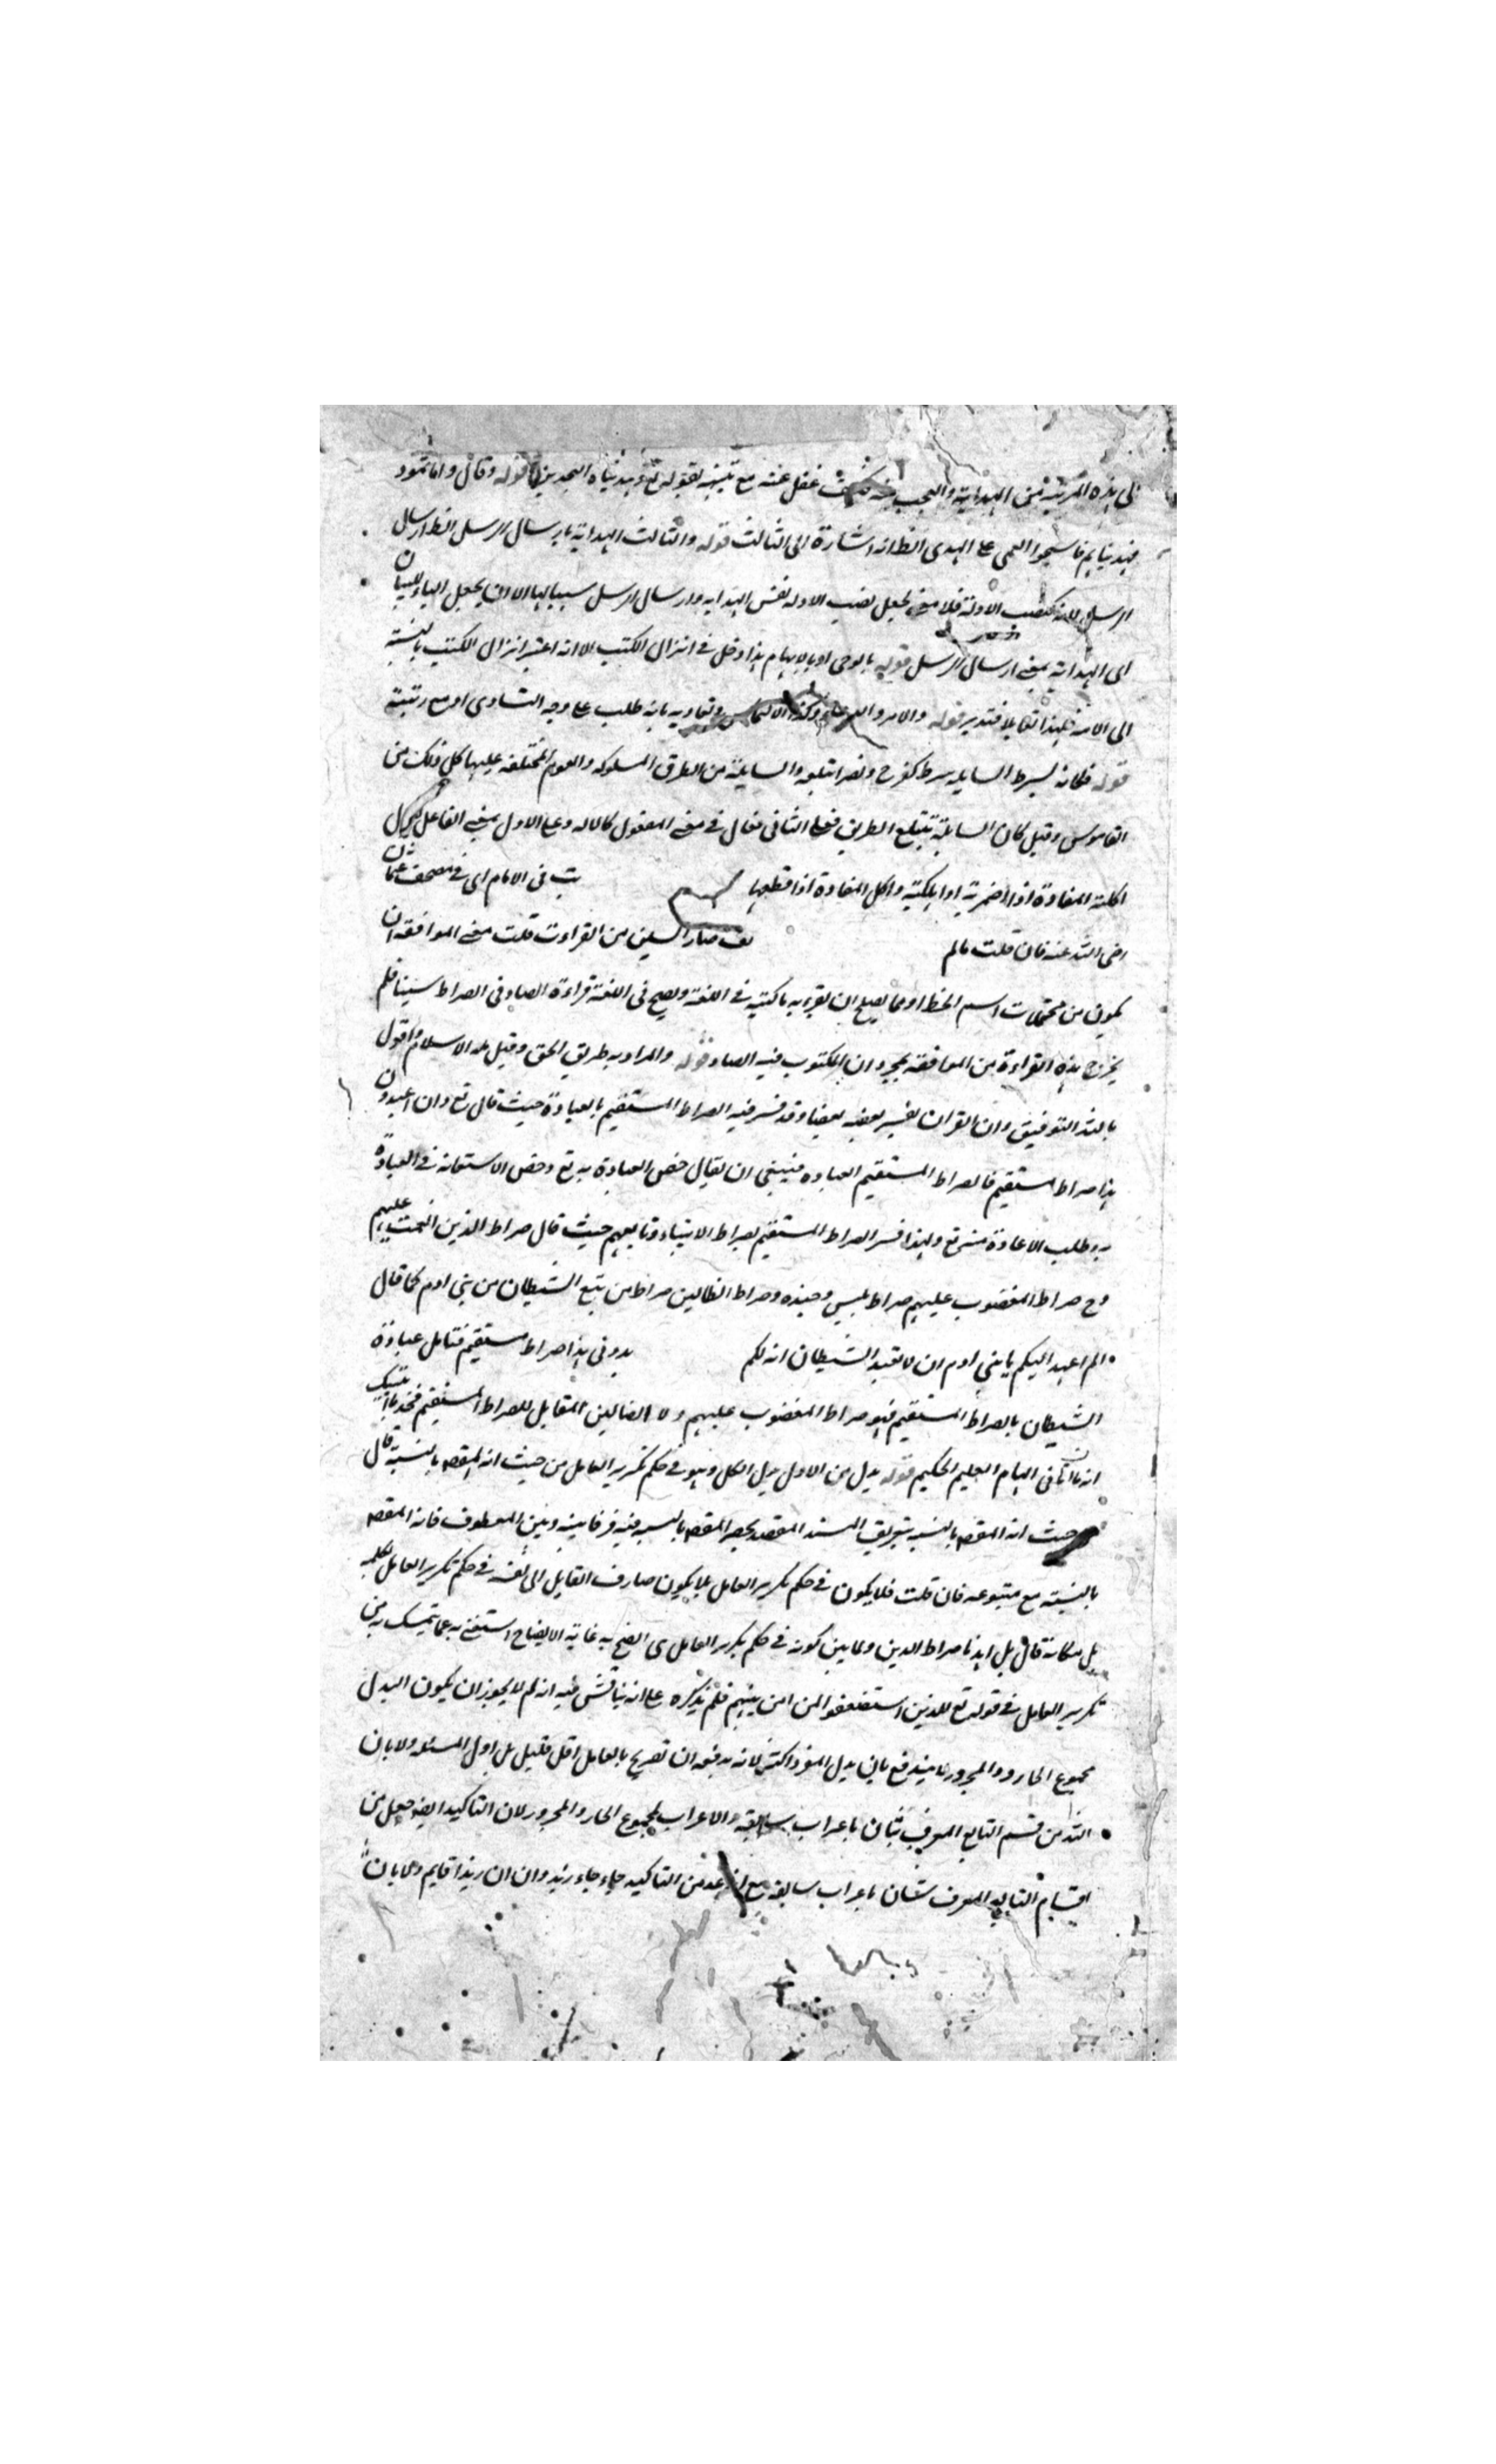 الى هذه المرتبة من الهداية والعجب منه كيف غفل عنه مع تنبيه لقوله تع وهديناه النجدين قوله وقال واما ثمود
فهديناهم فاستحبوا العمى على الهدى الظ انه اشارة الى الثالث قوله والثالث الهداية بارسال الرسل الظ ارسال
الرسل لانه كنصب الادلة فلا معنى لجعل نصب الادلة نفس الهداية وارسال الرسل سببا لها الا ان يجعل الباء للبيان
اى الهداية بمعنى ارسال الرسل قوله بالوحى او بالالهام هذا دخل فى انزال الكتب الا انه اعتبر انزال الكتب بالنسبة
الى الامة فلهذا تقابلا فتدبر قوله والامر والدعاء وكذا الالتماس وتعاديه بانه طلب على وجه التساوى او مع رتبته
قوله فكانه يسرط السابلة سرط كفرح ونصر ابتلعه والسابلة من الطرق المسلوكة والقوم المختلفة عليها كل ذلك من
القاموس وقيل كان السابلة تبتلع الطريق فعلى الثانى فعال فى معنى المفعول كالاله وعلى الاول بمعنى الفاعل كما يقال
اكلته المفازة اذا اضمرته او اهلكته واكل المفازة اذا قطعها ت فى الامام اى فى مصحف عثمان
رضى الله عنه فان قلت ما لم صار السين من القراءت قلت معنى الموافقة ان
يكون من محتملات اسم الخط او مما يصلح ان يقرء به ما كتبته فى اللغة ويصح فى اللغة قراءة الصاد فى الصراط سينا فلم
يخرج هذه القراءة من الموافقة بمجرد ان المكتوب فيه الصاد قوله والمراد به طريق الحق وقيل ملة الاسلام واقول
بالله التوفيق وان القران يفسر بعضه بعضا وقد فسر فيه الصراط المستقيم بالعبادة حيث قال تع وان اعبدون
هذا صراط مستقيم فالصراط المستقيم العبادة فينبغى ان يقال خص العبادة به تع وخص الاستعانة فى العبادة
به وطلب الاعادة منه تع ولهذا فسر الصراط المستقيم بصراط الانبياء وتابعيهم حيث قال صراط الذين انعمت عليهم
وح صراط المغضوب عليهم صراط ابليس وجنده وصراط الضالين صراط من يتبع الشيطان من بنى ادم كما قال
الم اعهد اليكم يا بنى ادم ان لا تعبدوا الشيطان انه لكم بدونى هذا صراط مستقيم فتامل عبادة
الشيطان بالصراط المستقيم فهو صراط المغضوب عليهم ولا الضالين المقابل للصراط المستقيم فخذ ما اتيتك
انه مما اتانى الهام العليم الحكيم قوله بدل من الاول بدل الكل وهو فى حكم تكرير العامل من حيث انه المقص بالنسبة قال
حيث انه المقص بالنسبة بتعريف المسند المقصد بحصر المقص بالنسبة فيه فرقا بينه وبين المعطوف فانه المقص
بالنسبة مع متبوعه فان قلت فلا يكون فى حكم تكرير العامل بل يكون صارف القايل الى نفسه فى حكم تكرير العامل
بل مكانه قال بل اهدنا صراط الذين ولما بين كونه فى حكم تكرير العامل اتضح به غاية الايضاح استغنى به عما تمسك به من
تكرير العامل فى قوله تع للذين استضعفوا لمن امن منهم فلم يذكره على انه يناقش فيه انه لم لا يجوز ان يكون البدل
مجموع الجار والمجرور فيندفع بان بدل المفرد اكثر لانه يدفعه ان تصريح بالعامل اقل قليل بل اول المسئلة ولا بان
البدل من قسم التابع المعرف بثان باعراب سابقه والاعراب لمجموع الجار والمجرور لان التاكيد ايضا جعل من
اقسام التابع المعرف بثان باعراب سابقه مع انه عد من التاكيد جاء جاء زيد وان ان زيدا قايم ولا بان